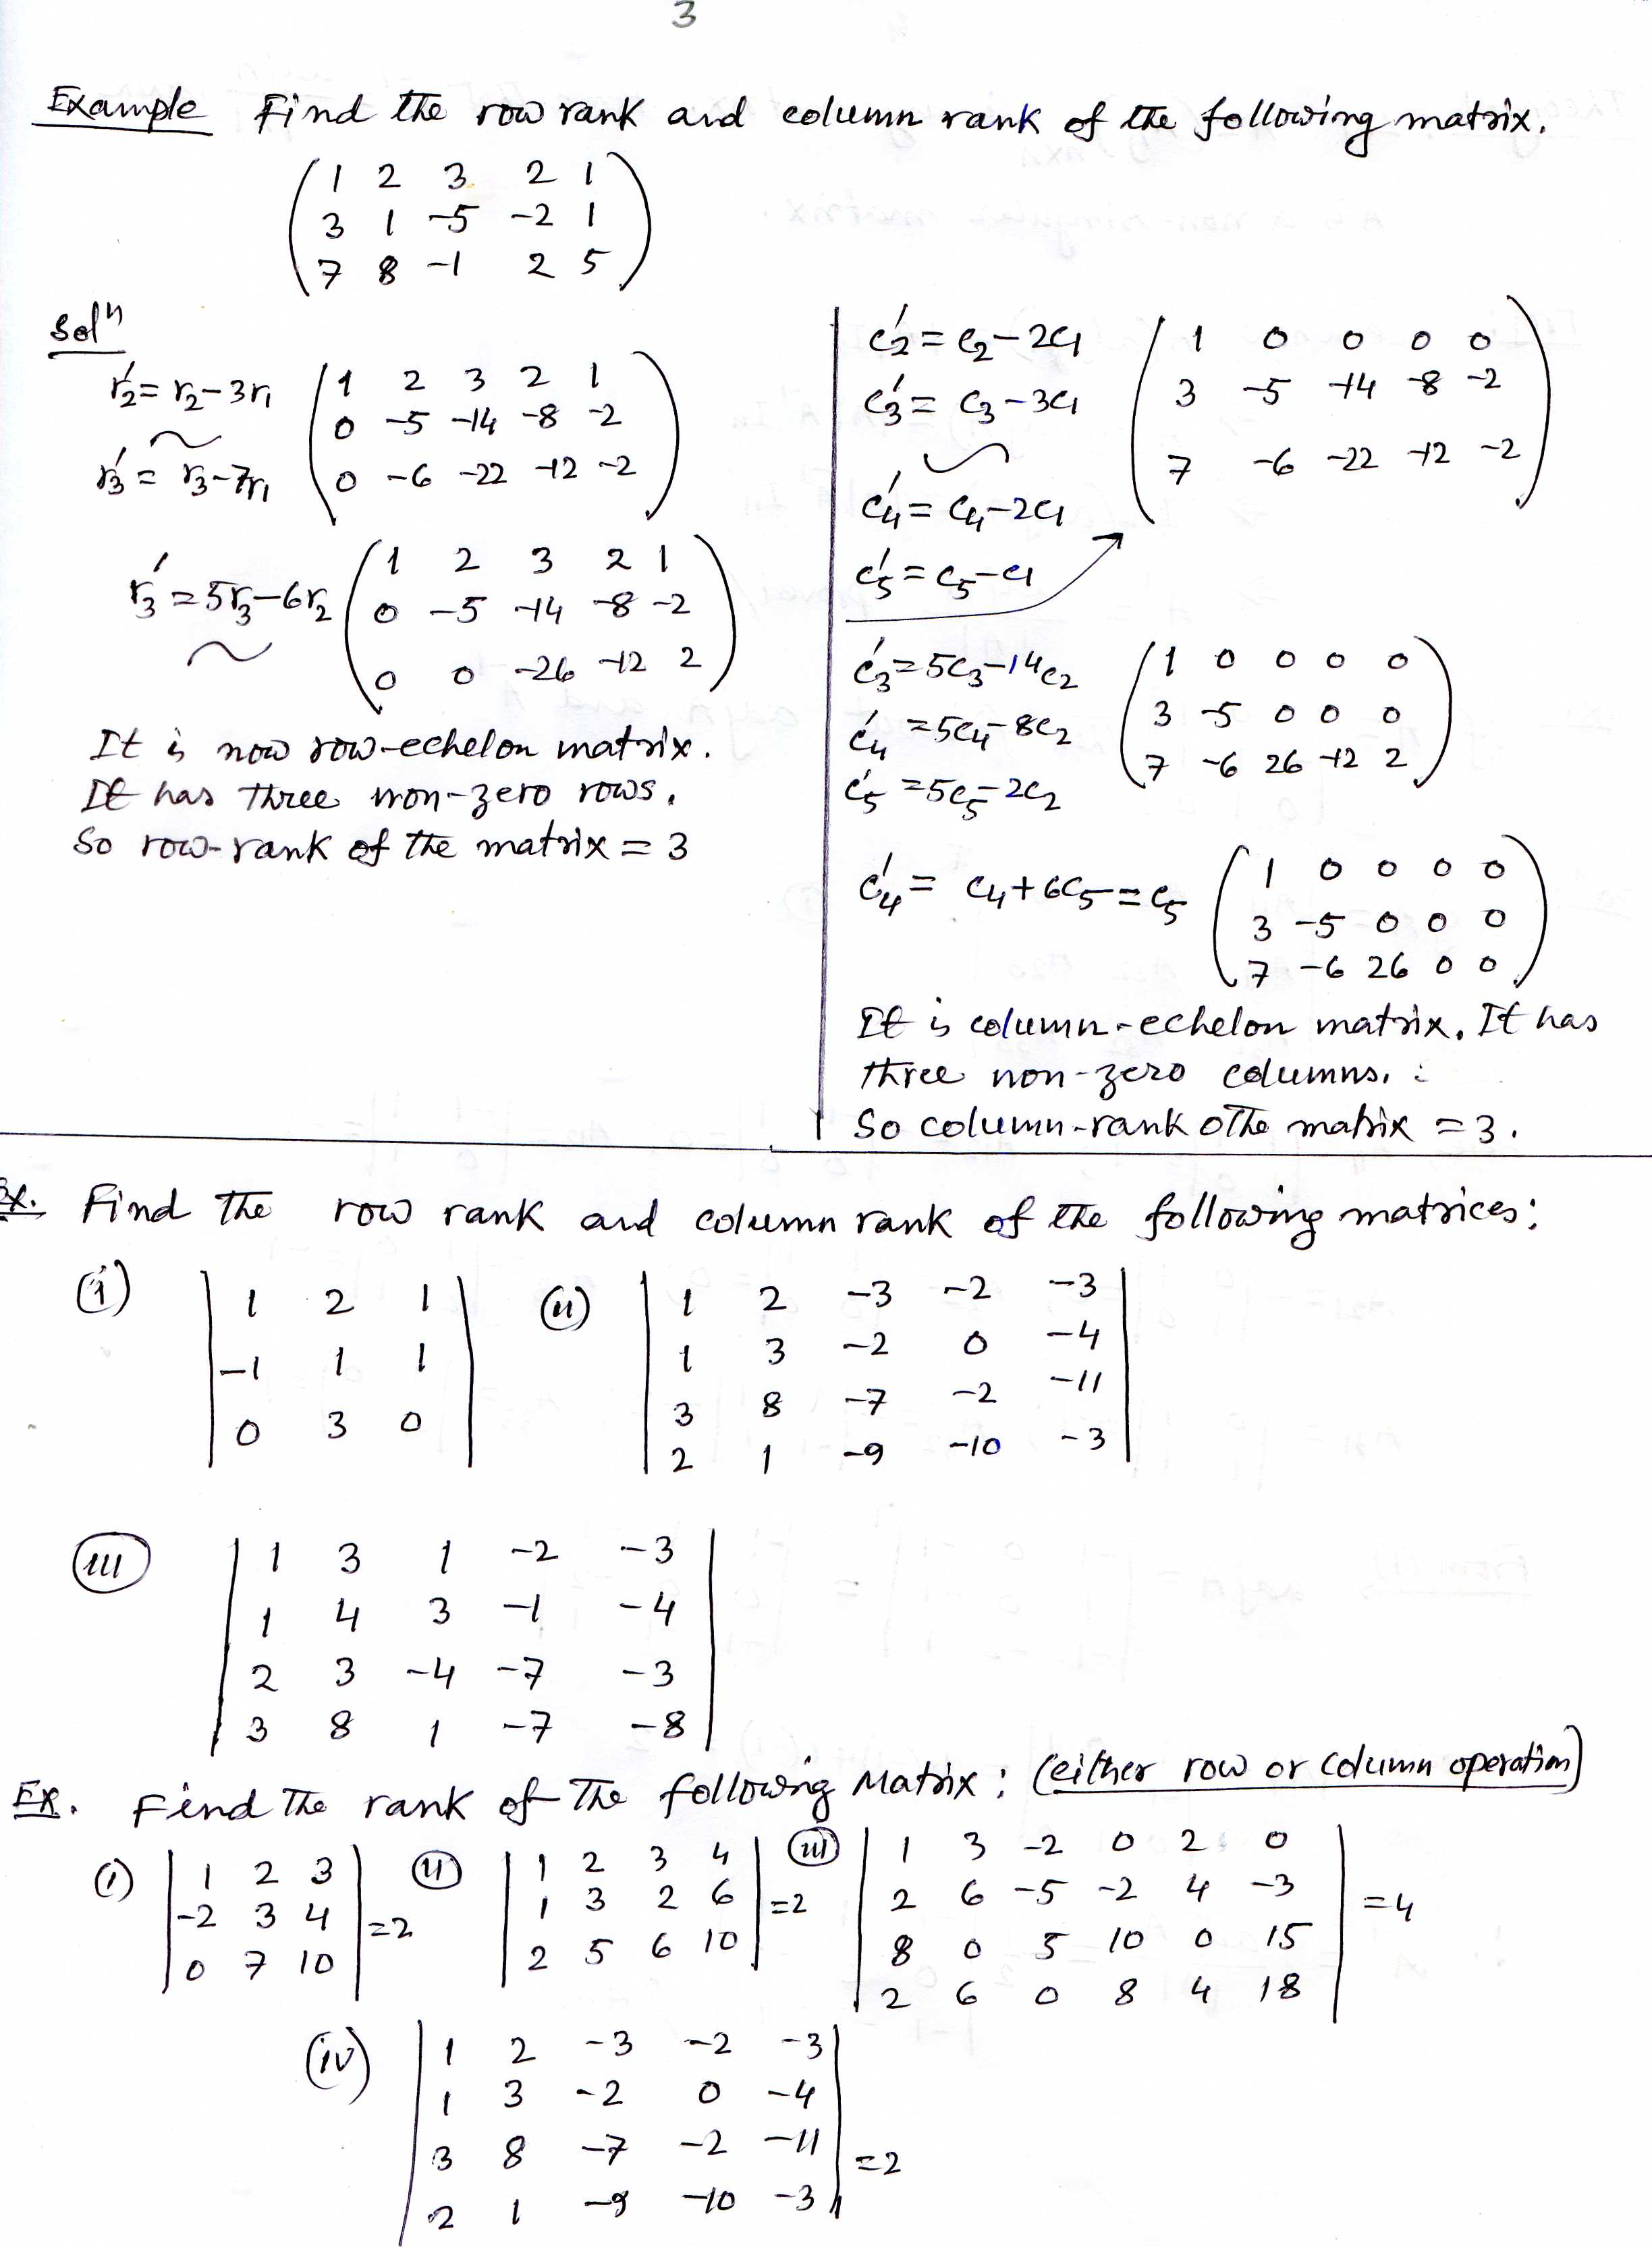 3
Example Find the row rank and column rank of the following matrix.
1 2 3 2 1
3 1 -5 -2 1
7 8 -1 2 5
Solⁿ
r₂' = r₂-3r₁
~
r₃' = r₃-7r₁
1 2 3 2 1
0 -5 -14 -8 -2
0 -6 -22 -12 -2
r₃' = 5r₃-6r₂
~
1 2 3 2 1
0 -5 -14 -8 -2
0 0 -26 -12 2
It is now row-echelon matrix.
It has three non-zero rows.
So row-rank of the matrix = 3
c₂' = c₂-2c₁
c₃' = c₃-3c₁
~
c₄' = c₄-2c₁
c₅' = c₅-c₁
1 0 0 0 0
3 -5 -14 -8 -2
7 -6 -22 -12 -2
c₃' = 5c₃-14c₂
c₄' = 5c₄-8c₂
c₅' = 5c₅-2c₂
1 0 0 0 0
3 -5 0 0 0
7 -6 26 -12 2
c₄' = c₄+6c₅ = c₅
1 0 0 0 0
3 -5 0 0 0
7 -6 26 0 0
It is column-echelon matrix. It has
three non-zero columns. :
So column-rank othe matrix = 3.
Ex. Find the row rank and column rank of the following matrices:
(i)
1 2 1
-1 1 1
0 3 0
(ii)
1 2 -3 -2 -3
1 3 -2 0 -4
3 8 -7 -2 -11
2 1 -9 -10 -3
(iii)
1 3 1 -2 -3
1 4 3 -1 -4
2 3 -4 -7 -3
3 8 1 -7 -8
Ex. Find the rank of the following Matrix: (either row or column operation)
(i)
1 2 3
-2 3 4
0 7 10
=2
(ii)
1 2 3 4
1 3 2 6
2 5 6 10
=2
(iii)
1 3 -2 0 2 0
2 6 -5 -2 4 -3
8 0 5 10 0 15
2 6 0 8 4 18
=4
(iv)
1 2 -3 -2 -3
1 3 -2 0 -4
3 8 -7 -2 -11
2 1 -9 -10 -3
=2